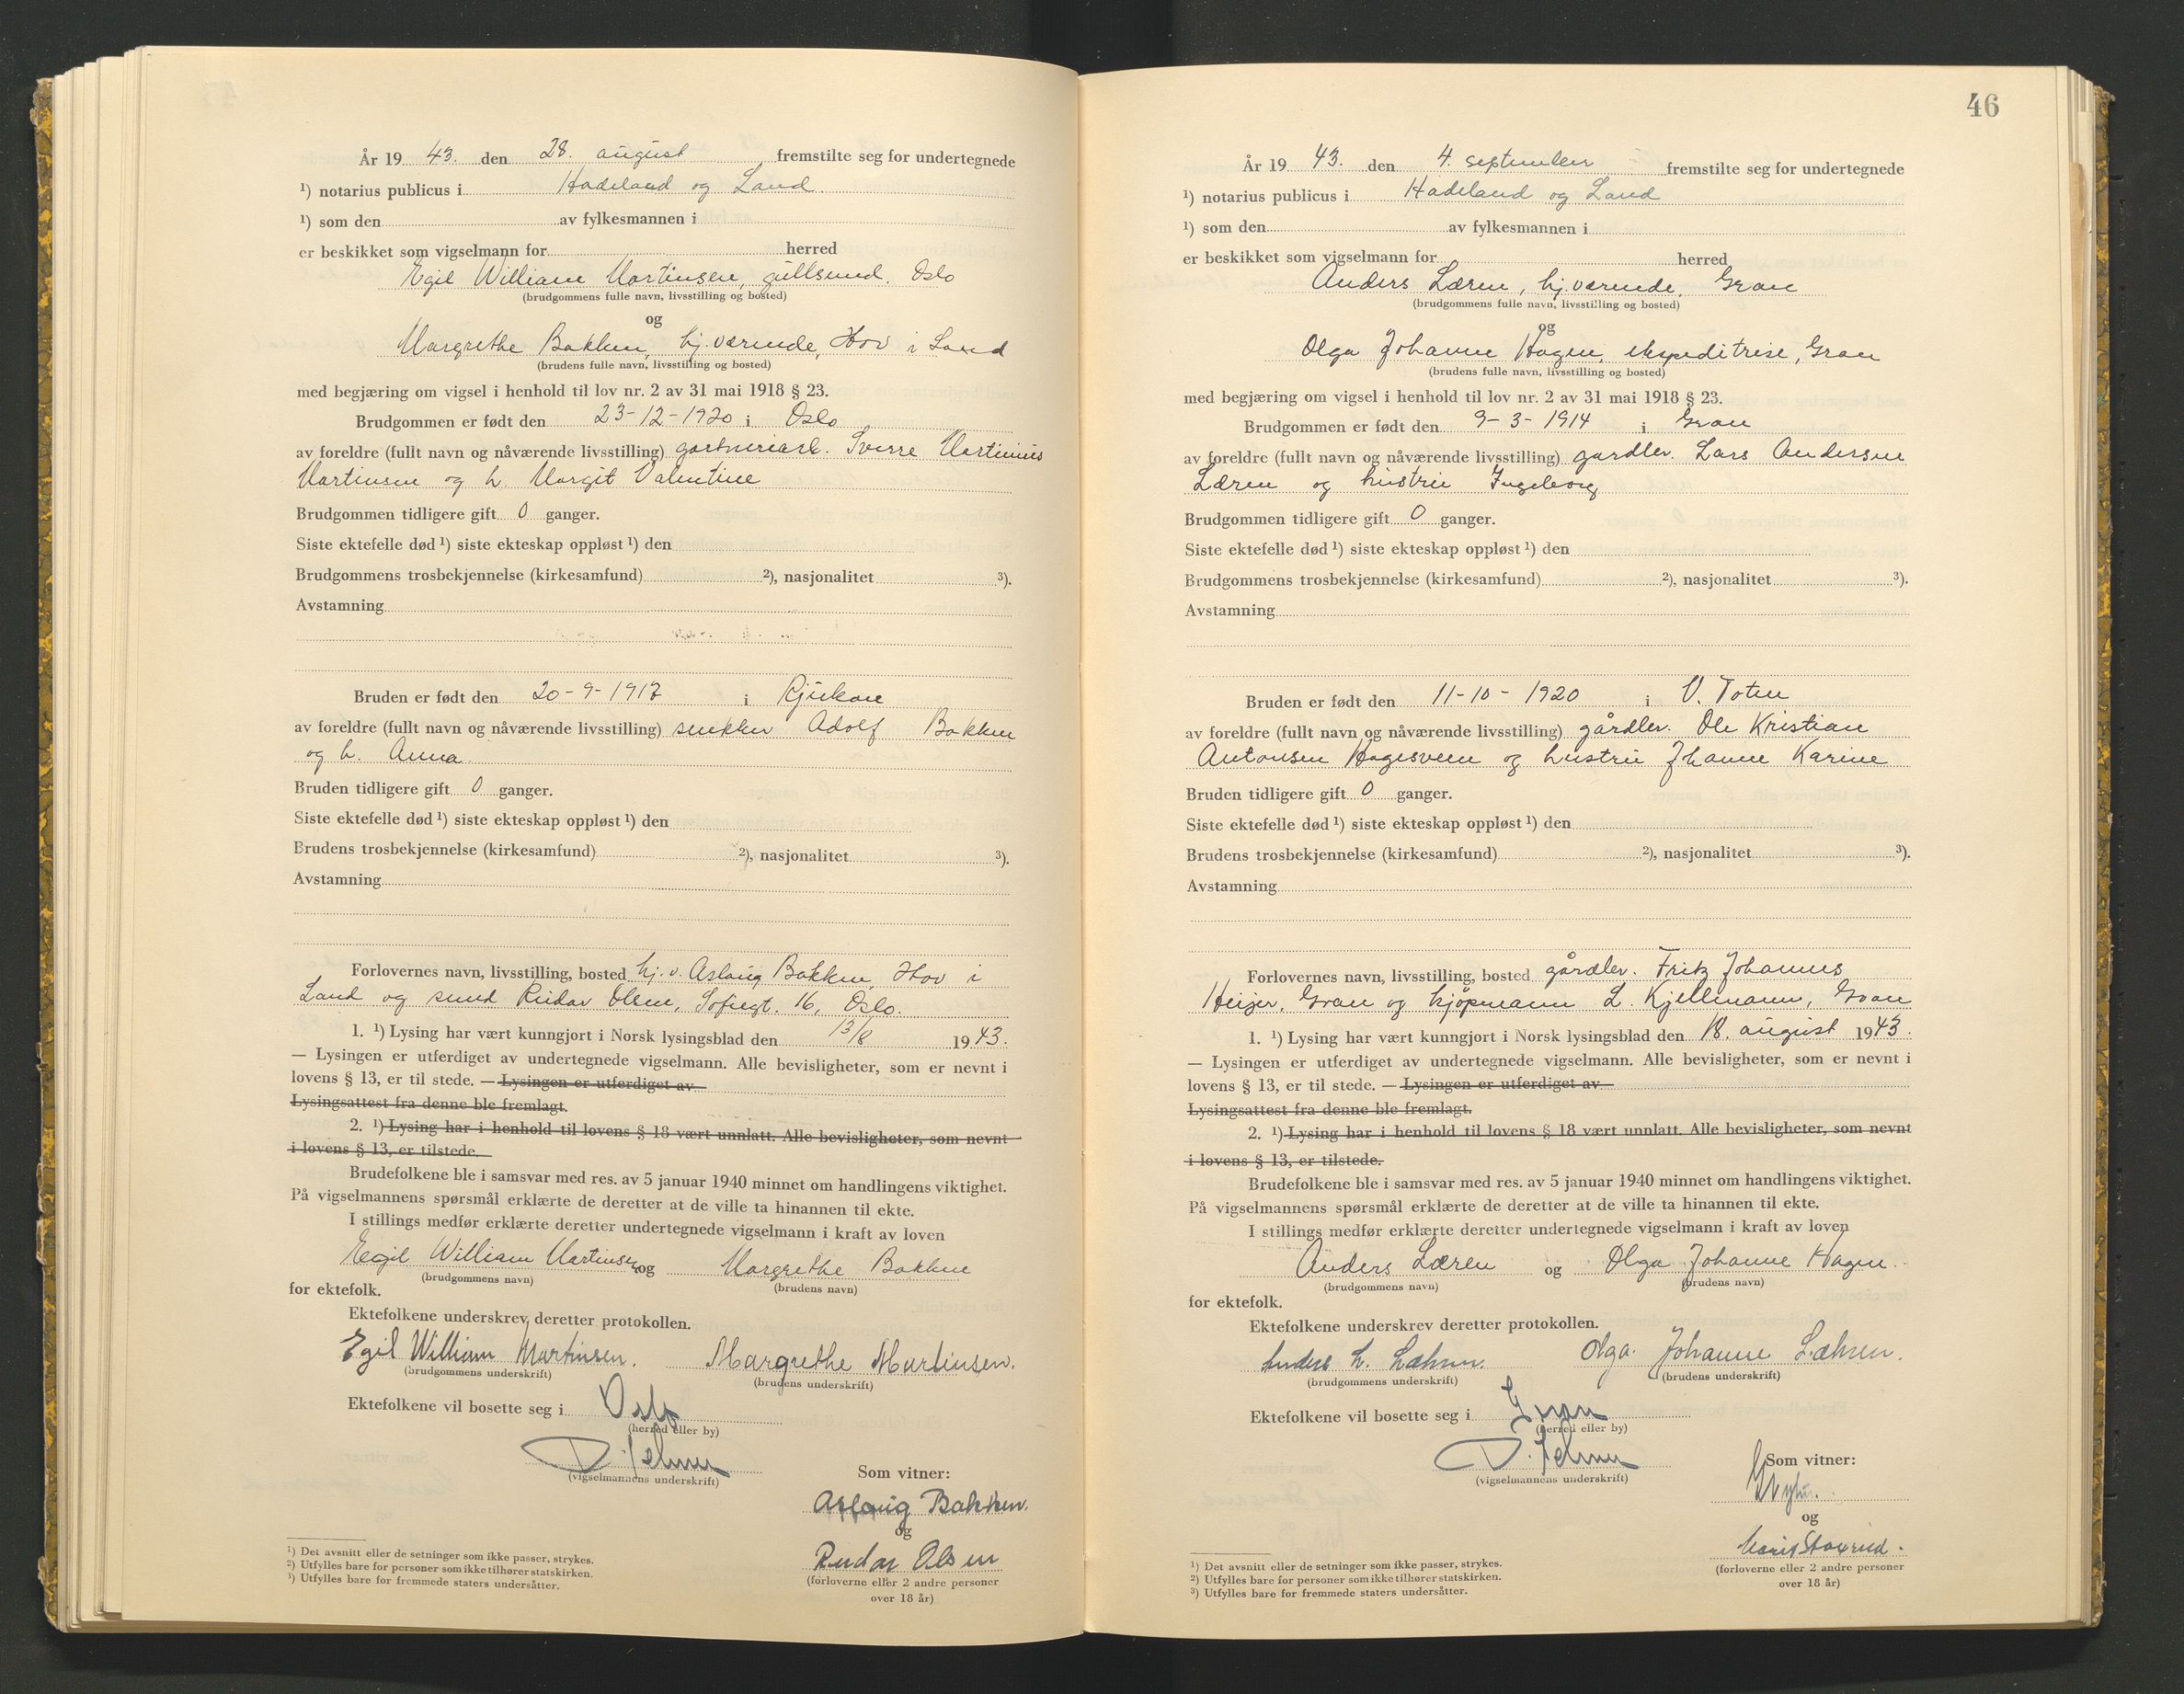 År 19 43. den 28. august fremstilte seg for undertegnede
¹) notarius publicus i Hadeland og Land
¹) som den av fylkesmannen i
er beskikket som vigselmann for herred
Egil William Martinsen, gullsmed. Oslo
(brudgommens fulle navn, livsstilling og bosted)
og
Margrethe Bakken, hj.værende, Hov i Land
(brudens fulle navn, livsstilling og bosted)
med begjæring om vigsel i henhold til lov nr. 2 av 31 mai 1918 § 23.
Brudgommen er født den 23-12-1920 i Oslo
av foreldre (fullt navn og nåværende livsstilling) gartneriarb. Sverre Martinius
Martinsen og h. Margit Valentine
Brudgommen tidligere gift 0 ganger.
Siste ektefelle død ¹) siste ekteskap oppløst ¹) den
Brudgommens trosbekjennelse (kirkesamfund) ²), nasjonalitet ³).
Avstamning
Bruden er født den 20-9-1917 i Rjukan
av foreldre (fullt navn og nåværende livsstilling) snekker Adolf Bakken
og h. Anna
Bruden tidligere gift 0 ganger.
Siste ektefelle død ¹) siste ekteskap oppløst ¹) den
Brudens trosbekjennelse (kirkesamfund) ²), nasjonalitet ³).
Avstamning
Forlovernes navn, livsstilling, bosted hj.v. Aslaug Bakken, Hov i
Land og smed Reidar Olsen, Sofiegt. 16, Oslo.
1. ¹) Lysing har vært kunngjort i Norsk lysingsblad den 13/8 19 43.
— Lysingen er utferdiget av undertegnede vigselmann. Alle bevisligheter, som er nevnt i
lovens § 13, er til stede. — Lysingen er utferdiget av
Lysingsattest fra denne ble fremlagt.
2. ¹) Lysing har i henhold til lovens § 18 vært unnlatt. Alle bevisligheter, som nevnt
i lovens § 13, er tilstede.
Brudefolkene ble i samsvar med res. av 5 januar 1940 minnet om handlingens viktighet.
På vigselmannens spørsmål erklærte de deretter at de ville ta hinannen til ekte.
I stillings medfør erklærte deretter undertegnede vigselmann i kraft av loven
Egil William Martinsen og Margrethe Bakken
(brudgommens navn) (brudens navn)
for ektefolk.
Ektefolkene underskrev deretter protokollen.
Egil William Martinsen. Margrethe Martinsen.
(brudgommens underskrift) (brudens underskrift)
Ektefolkene vil bosette seg i Oslo
(herred eller by)
(vigselmannens underskrift)
Som vitner:
Aslaug Bakken.
og
Reidar Olsen
(forloverne eller 2 andre personer
over 18 år)
¹) Det avsnitt eller de setninger som ikke passer, strykes.
²) Utfylles bare for personer som ikke tilhører statskirken.
³) Utfylles bare for fremmede staters undersåtter.
46
År 19 43. den 4. september fremstilte seg for undertegnede
¹) notarius publicus i Hadeland og Land
¹) som den av fylkesmannen i
er beskikket som vigselmann for herred
Anders Læren, hj.værende, Gran
(brudgommens fulle navn, livsstilling og bosted)
og
Olga Johanne Hagen, ekspeditrise, Gran
(brudens fulle navn, livsstilling og bosted)
med begjæring om vigsel i henhold til lov nr. 2 av 31 mai 1918 § 23.
Brudgommen er født den 9-3-1914 i Gran
av foreldre (fullt navn og nåværende livsstilling) gardbr. Lars Andersen
Læren og hustru Ingeborg
Brudgommen tidligere gift 0 ganger.
Siste ektefelle død ¹) siste ekteskap oppløst ¹) den
Brudgommens trosbekjennelse (kirkesamfund) ²), nasjonalitet ³).
Avstamning
Bruden er født den 11-10-1920 i V. Toten
av foreldre (fullt navn og nåværende livsstilling) gårdbr. Ole Kristian
Antonsen Hagesveen og hustru Johanne Karine
Bruden tidligere gift 0 ganger.
Siste ektefelle død ¹) siste ekteskap oppløst ¹) den
Brudens trosbekjennelse (kirkesamfund) ²), nasjonalitet ³).
Avstamning
Forlovernes navn, livsstilling, bosted gårdbr. Fritz Johannes
Heijer, Gran og kjøpmann L. Kjellmann, Gran
1. ¹) Lysing har vært kunngjort i Norsk lysingsblad den 18. august 19 43.
— Lysingen er utferdiget av undertegnede vigselmann. Alle bevisligheter, som er nevnt i
lovens § 13, er til stede. — Lysingen er utferdiget av
Lysingsattest fra denne ble fremlagt.
2. ¹) Lysing har i henhold til lovens § 18 vært unnlatt. Alle bevisligheter, som nevnt
i lovens § 13, er tilstede.
Brudefolkene ble i samsvar med res. av 5 januar 1940 minnet om handlingens viktighet.
På vigselmannens spørsmål erklærte de deretter at de ville ta hinannen til ekte.
I stillings medfør erklærte deretter undertegnede vigselmann i kraft av loven
Anders Læren og Olga Johanne Hagen.
(brudgommens navn) (brudens navn)
for ektefolk.
Ektefolkene underskrev deretter protokollen.
Anders L. Læhren. Olga Johanne Læhren.
(brudgommens underskrift) (brudens underskrift)
Ektefolkene vil bosette seg i Gran
(herred eller by)
(vigselmannens underskrift)
Som vitner:
og
(forloverne eller 2 andre personer
over 18 år)
¹) Det avsnitt eller de setninger som ikke passer, strykes.
²) Utfylles bare for personer som ikke tilhører statskirken.
³) Utfylles bare for fremmede staters undersåtter.